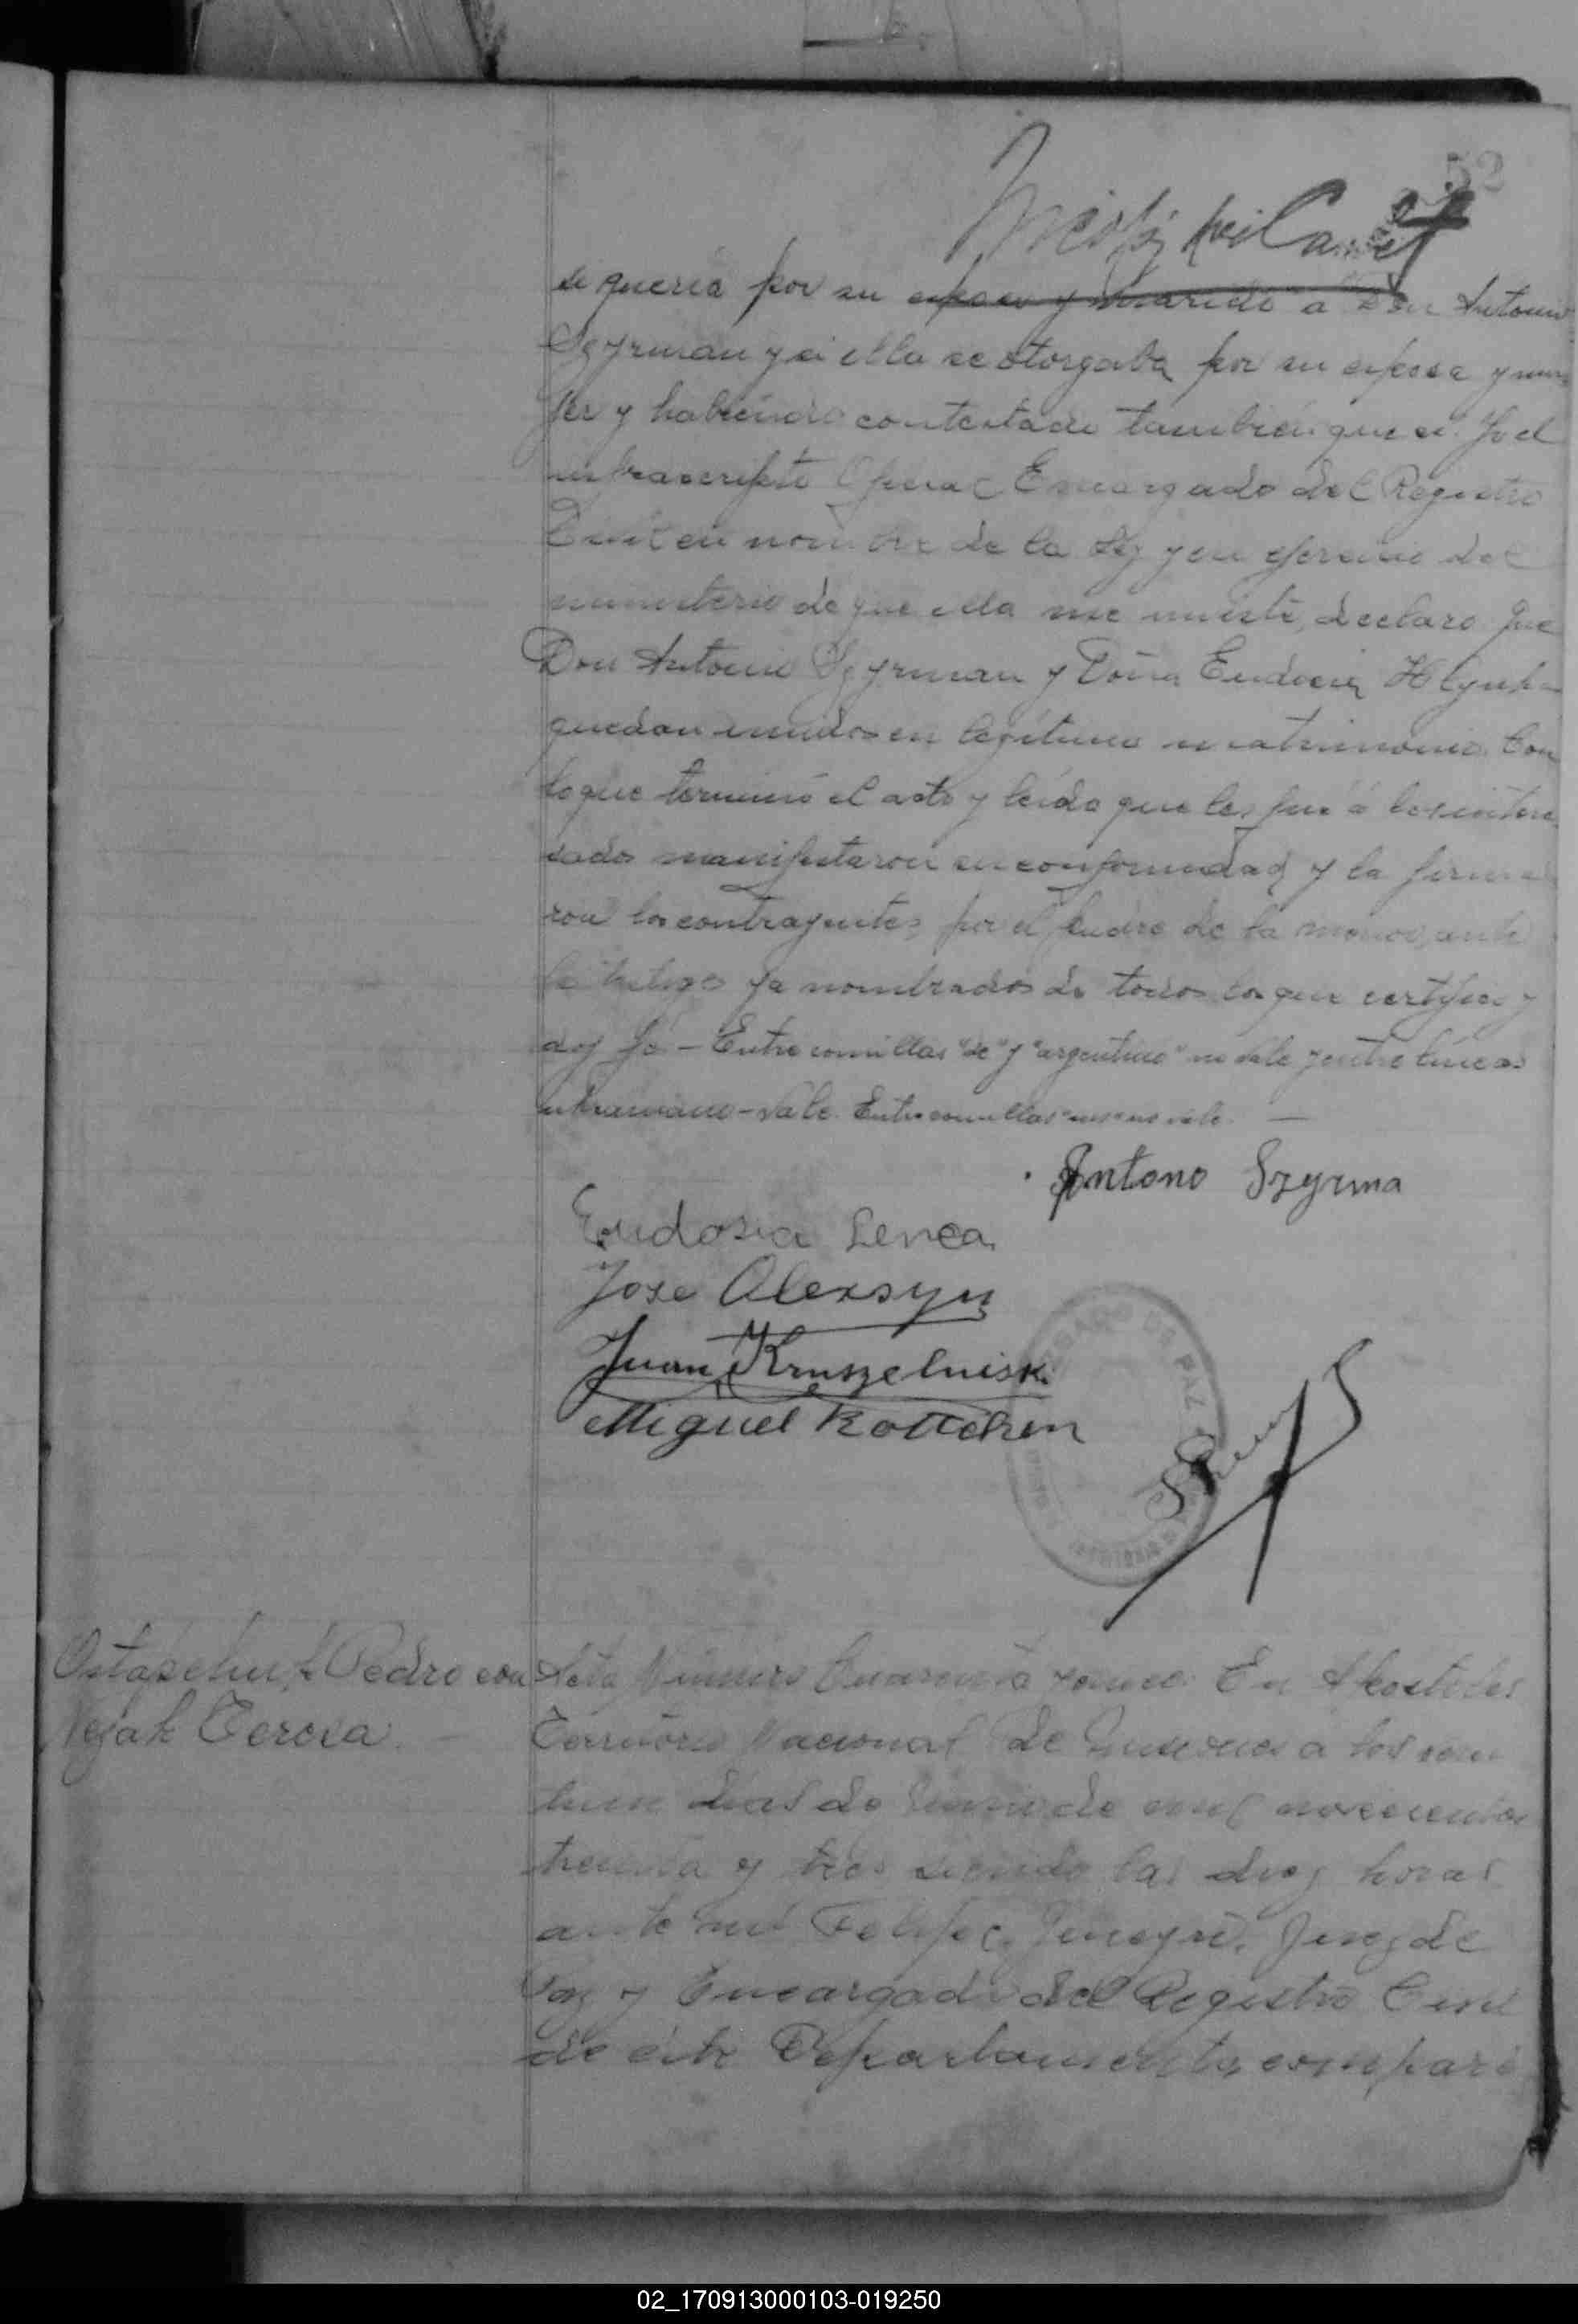 52
si queria por su esposo y marido a Don Antonio
Szyrman y si ella se otorgaba por su esposa y mu
jer y habiendo contestado tambien que si. Yo el
infrascripto Oficial Encargado del Registro
Civil en nombre de la ley y en ejercicio del
ministerio de que ella me inviste, declaro que
Don Antonio Szyrman y Doña Eudocia
quedan unidos en legitimo matrimonio. Con
lo que terminó el acto y leida que les fué á los intere
sados manifestaron su conformidad y la firma
ron los contrayentes, por el padre de la menor, ante
los testigos ya nombrados de todos los que certifico y
doy fé. - Entre comillas "de" y "argentino" no vale y entre lineas
ukraniano - vale. Entre comillas no vale. —
Antono Szyrma
Eudosia
Jose Olexsyn
Juan Kruszelniski
Miguel
JUZGADO DE PAZ
Ostapchuk Pedro con
Nejak Teresa. —
Acta Número Cuarenta y cinco. En Apostoles
Territorio Nacional de Misiones a los vein
tiun dias de Junio de mil novecientos
treinta y tres siendo las diez horas
ante mi Felipe Juez de
Paz y Encargado del Registro Civil
de este Departamento, compare
02_170913000103-019250